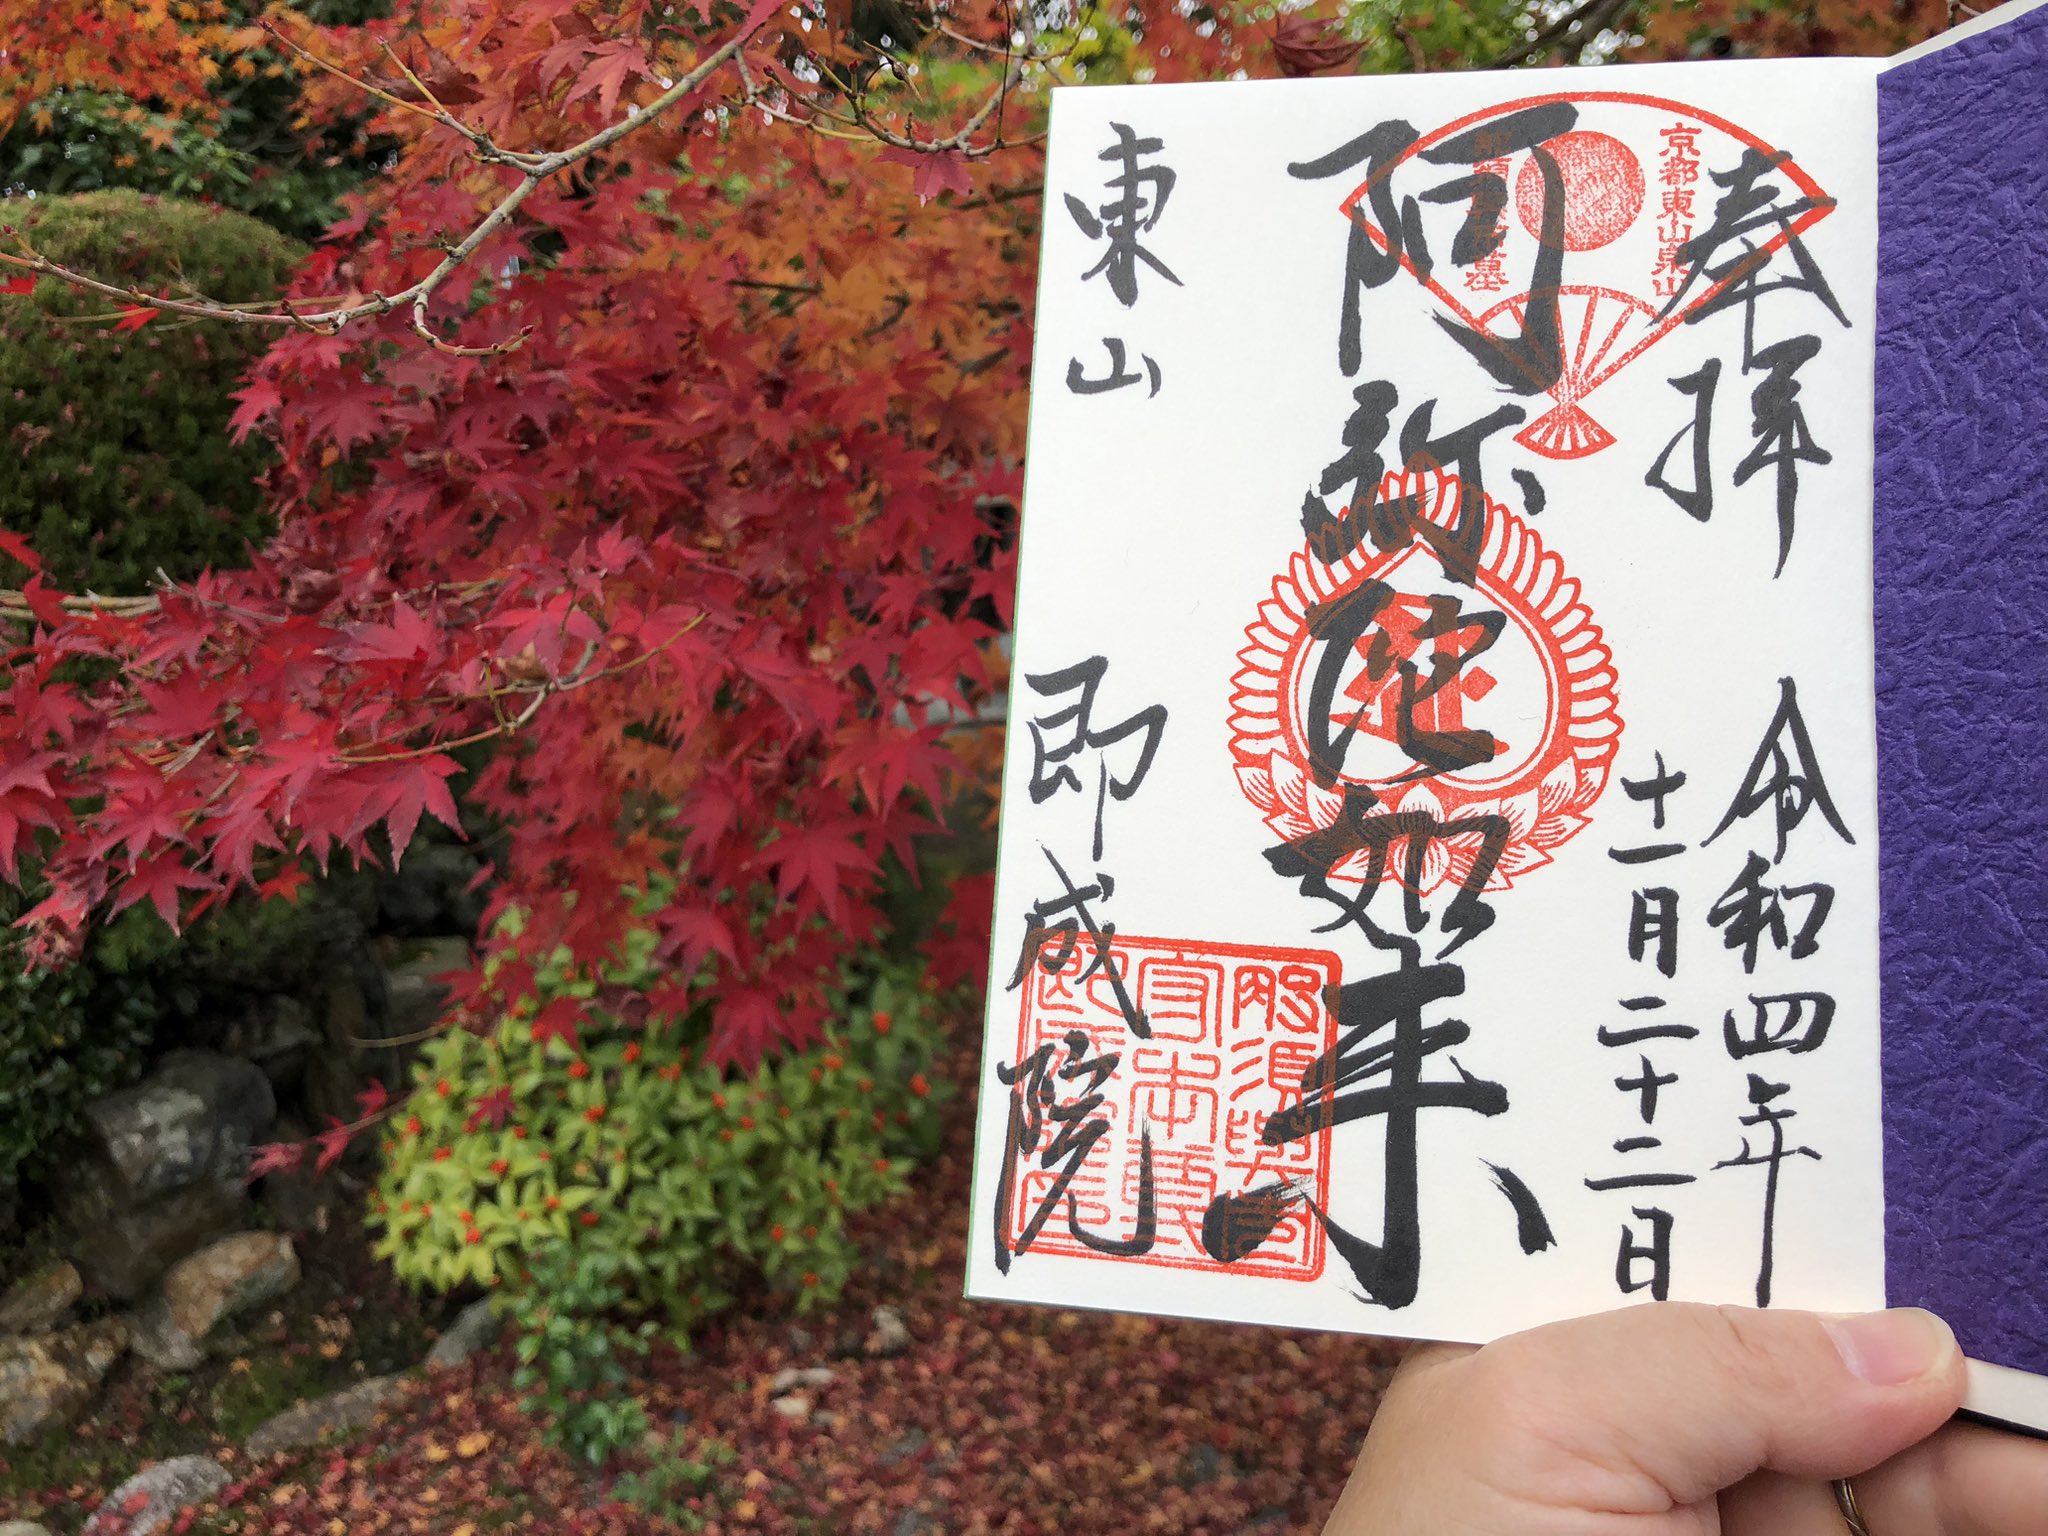 奉拝
令和四年
十一月二十二日
京都東山泉山
阿弥陀如来
東山
即成院